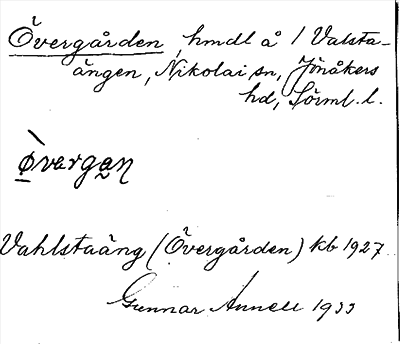 Övergården, hmdl å 1 Valsta-
ängen, Nikolai sn, Jönåkers
hd, Sörml. l.
ø̀vargan
Vahlstaäng (Övergården) kb 1927
Gunnar Annell 1933